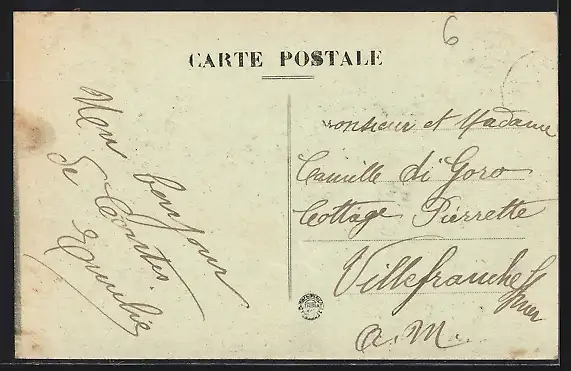 6
CARTE POSTALE
Un bonjour
de Contes
Emilie
Monsieur et Madame
Camille di Goro
Cottage Pierrette
Villefranche s/
mer
A. M.